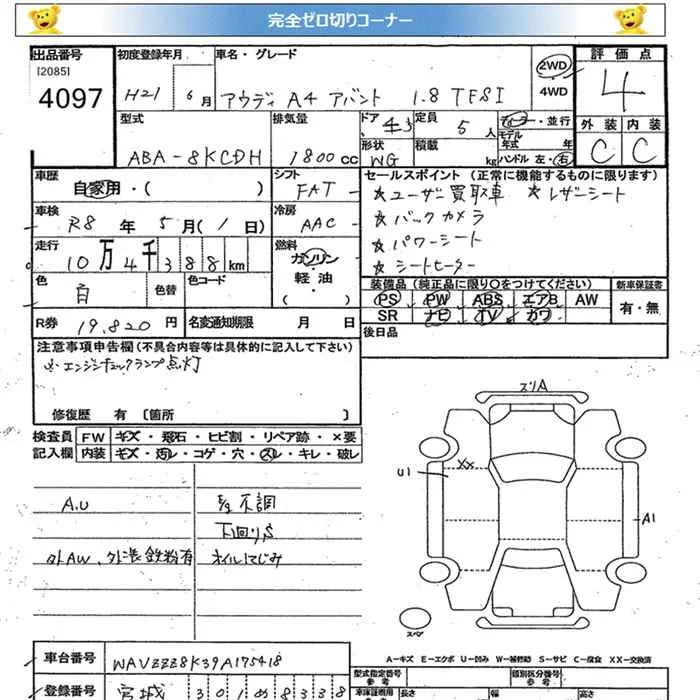 完全ゼロ切りコーナー
出品番号 初度登録年月 車名・グレード 2WD 評価点
[2085] 4097 H21 6月 アウディ A4 アバント 1.8 TFSI 4WD 4
型式 排気量 ドア 定員 5人 ディーラー・並行 外装 内装
ABA-8KCDH 1800cc 形状 WG 積載 kg モデル年式 年 ハンドル 左・右 C C
車歴 自家用・( ) シフト FAT セールスポイント (正常に機能するものに限ります)
★ユーザー買取車 ★レザーシート
車検 R8年 5月(1日) 冷房 AAC ★バックカメラ
走行 10万4千388km 燃料 ガソリン・軽油・( ) ★パワーシート
★シートヒーター
色 白 色替 色コード 装備品(純正品に限り○をつけてください) 新車保証書
PS PW ABS エアB AW 有・無
SR ナビ TV カワ
R券 19,820円 名変通知期限 月 日 後日品
注意事項申告欄(不具合内容等は具体的に記入して下さい)
エンジンチェックランプ点灯
修復歴 有〔箇所 〕
検査員 FW キズ・飛石・ヒビ割・リペア跡・×要
記入欄 内装 キズ・汚れ・コゲ・穴・スレ・キレ・破レ
ズリA
XX
U1
A.U 不調
A1
下回りS
外AW、外装鉄粉有 オイルにじみ
スペア
A-キズ E-エクボ U-凹み W-補修跡 S-サビ C-腐食 XX-交換済
車台番号 WAVZZZ8K39A175418
型式指定番号 類別区分番号
参考 参考
登録番号 宮城 301 8338
長さ 幅 高さ